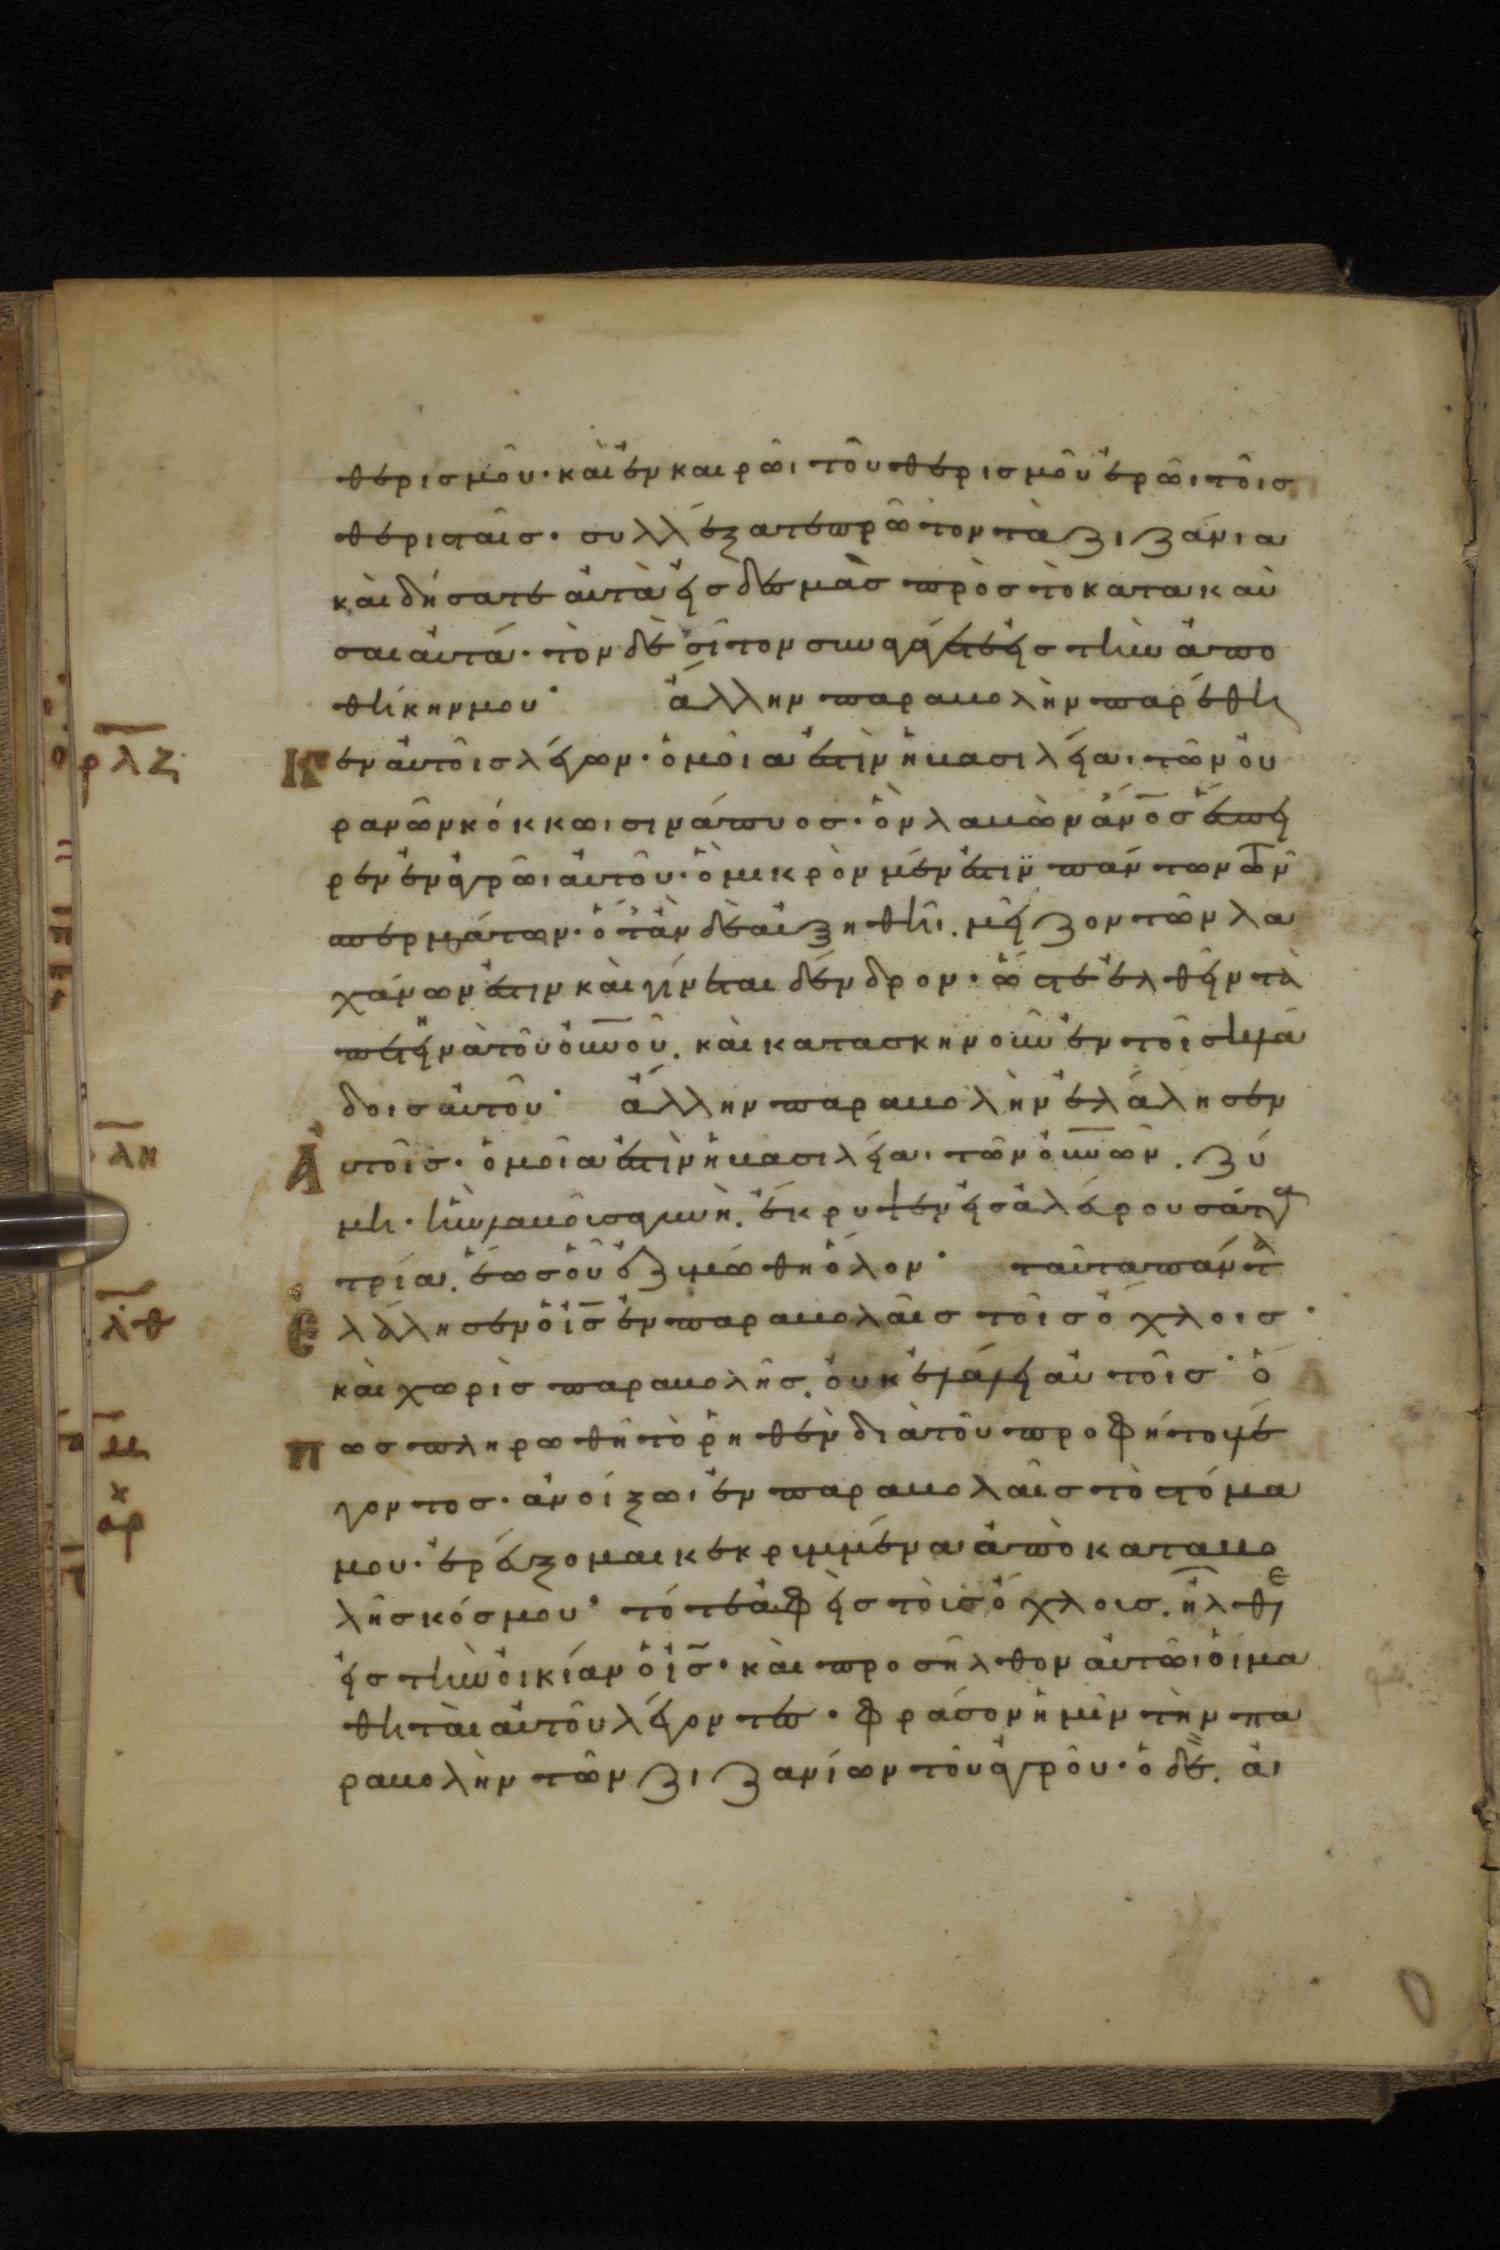 θερισμοῦ· καὶ ἐν καιρῶι τοῦ θερισμοῦ ἐρῶι τοῖσ
θερισταῖσ· συλλέξατε πρῶτον τὰ ζιζάνια
καὶ δήσατε αὐτὰ εἰσ δεσμὰσ πρὸσ τὸ κατακαῦ
σαι αὐτά· τὸν δὲ σῖτον συναγάγετε εἰσ τὴν ἀπο
θήκην μου· ἄλλην παραβολὴν παρέθη
ρλζ κεν αὐτοῖσ λέγων· ὁμοία ἐστὶν ἡ βασιλεία· τῶν οὐ
ρανῶν κόκκωι σινάπυοσ· ὃν λαβὼν ἄν̅ο̅σ ἔσπει
ρεν ἐν ἀγρῶι αὐτοῦ· ὃ μικρὸν μέν ἐστιν πάντων τῶν
σπερμάτων· ὅταν δὲ αὐξηθῆι. μεῖζον τῶν λα
χάνων ἐστιν καὶ γίνεται δένδρον· ὥστε ἐλθεῖν τὰ
πετηνὰ τοῦ ο̅υ̅ν̅οῦ. καὶ κατασκηνοῦν ἐν τοῖσ κλά
δοισ αὐτοῦ· ἄλλην παραβολὴν ἐλάλησεν
λη Αὐτοῖσ· ὁμοία ἐστὶν ἡ βασιλεία· τῶν ο̅υ̅ν̅ῶν. ζύ
μη· ἣν λαβοῦσα γυνὴ. ἔκρυψεν εἰσ ἀλεύρου σάτα
τρία. ἕωσ οὗ ἐζυμώθη ὅλον· ταῦτα πάντα
λθ Ἐλάλησεν ὁ ι̅σ̅ ἐν παραβολαῖσ τοῖσ ὄχλοισ·
καὶ χωρὶσ παραβολῆσ. οὐκ ἐλάλει αὐτοῖσ· ὅ
μ Πωσ πληρωθῆ τὸ ῥηθὲν διὰ τοῦ προφήτου λέ
γοντοσ· ἀνοίξωι ἐν παραβολαῖσ τὸ στόμα
μου· ἐρεύξομαι κεκρυμμένα ἀπὸ καταβο
λῆσ κόσμου· τότε ἀφεὶσ τοὺσ ὄχλουσ. ἦλθε
εἰσ τὴν οἰκίαν ὁ ι̅σ̅· καὶ προσῆλθον αὐτῶι οἱ μα
θηταὶ αὐτοῦ λέγοντεσ· φράσον ἡμῖν τὴν πα
ραβολὴν τῶν ζιζανίων τοῦ ἀγροῦ· ὁ δὲ. ἀ